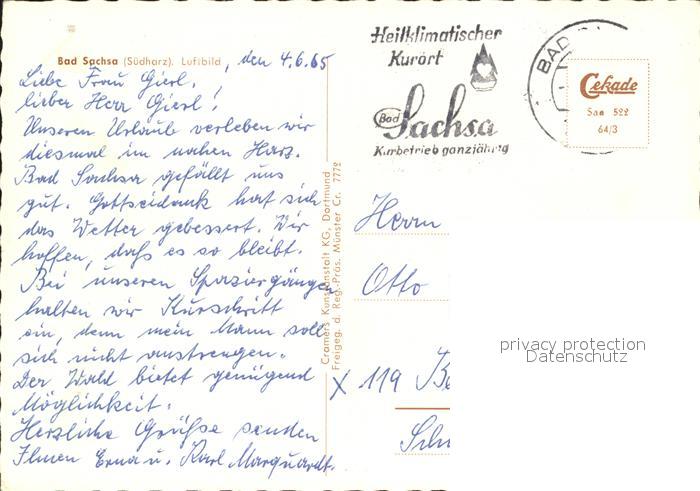 Bad Sachsa (Südharz). Luftbild, den 4.6.65
Liebe Frau Gierl,
lieber Herr Gierl!
Unseren Urlaub verleben wir
diesmal im nahen Harz.
Bad Sachsa gefällt uns
gut. Gottseidank hat sich
das Wetter gebessert. Wir
hoffen, daß es so bleibt.
Bei unseren Spaziergängen
halten wir Kurschritt
ein, denn mein Mann soll
sich nicht anstrengen.
Der Wald bietet genügend
Möglichkeit.
Herzliche Grüße senden
Ihnen Erna u. Karl Marquardt.
Cramers Kunstanstalt KG, Dortmund
Freigeg. d. Reg.-Präs. Münster Cr. 7772
Heilklimatischer
Kurort
Bad Sachsa
Kurbetrieb ganzjährig
BAD
Cekade
Saa 522
64/3
Herrn
Otto
X 119 Be
Schu
privacy protection
Datenschutz